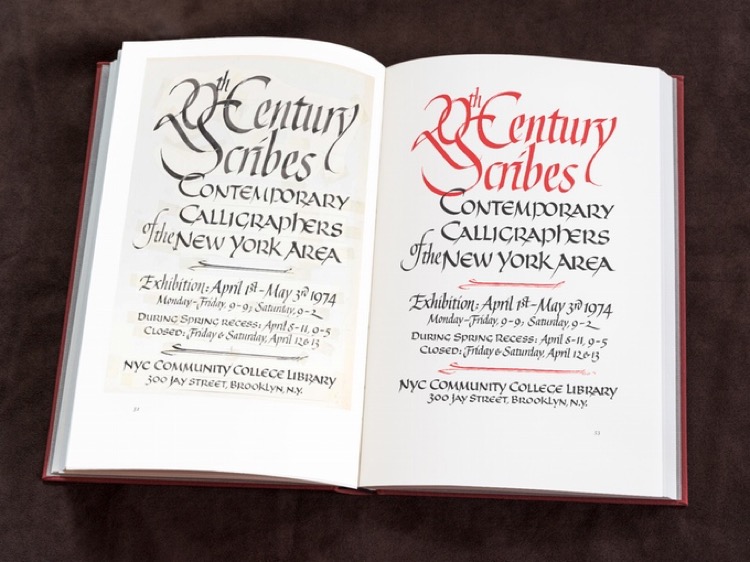 20th Century
Scribes
CONTEMPORARY
CALLIGRAPHERS
of the NEW YORK AREA
Exhibition: April 1st – May 3rd 1974
Monday – Friday, 9-9; Saturday, 9-2
DURING SPRING RECESS: April 8-11, 9-5
CLOSED: Friday & Saturday, April 12 & 13
NYC COMMUNITY COLLEGE LIBRARY
300 JAY STREET, BROOKLYN, N.Y.
20th Century
Scribes
CONTEMPORARY
CALLIGRAPHERS
of the NEW YORK AREA
Exhibition: April 1st – May 3rd 1974
Monday – Friday, 9-9; Saturday, 9-2
DURING SPRING RECESS: April 8-11, 9-5
CLOSED: Friday & Saturday, April 12 & 13
NYC COMMUNITY COLLEGE LIBRARY
300 JAY STREET, BROOKLYN, N.Y.